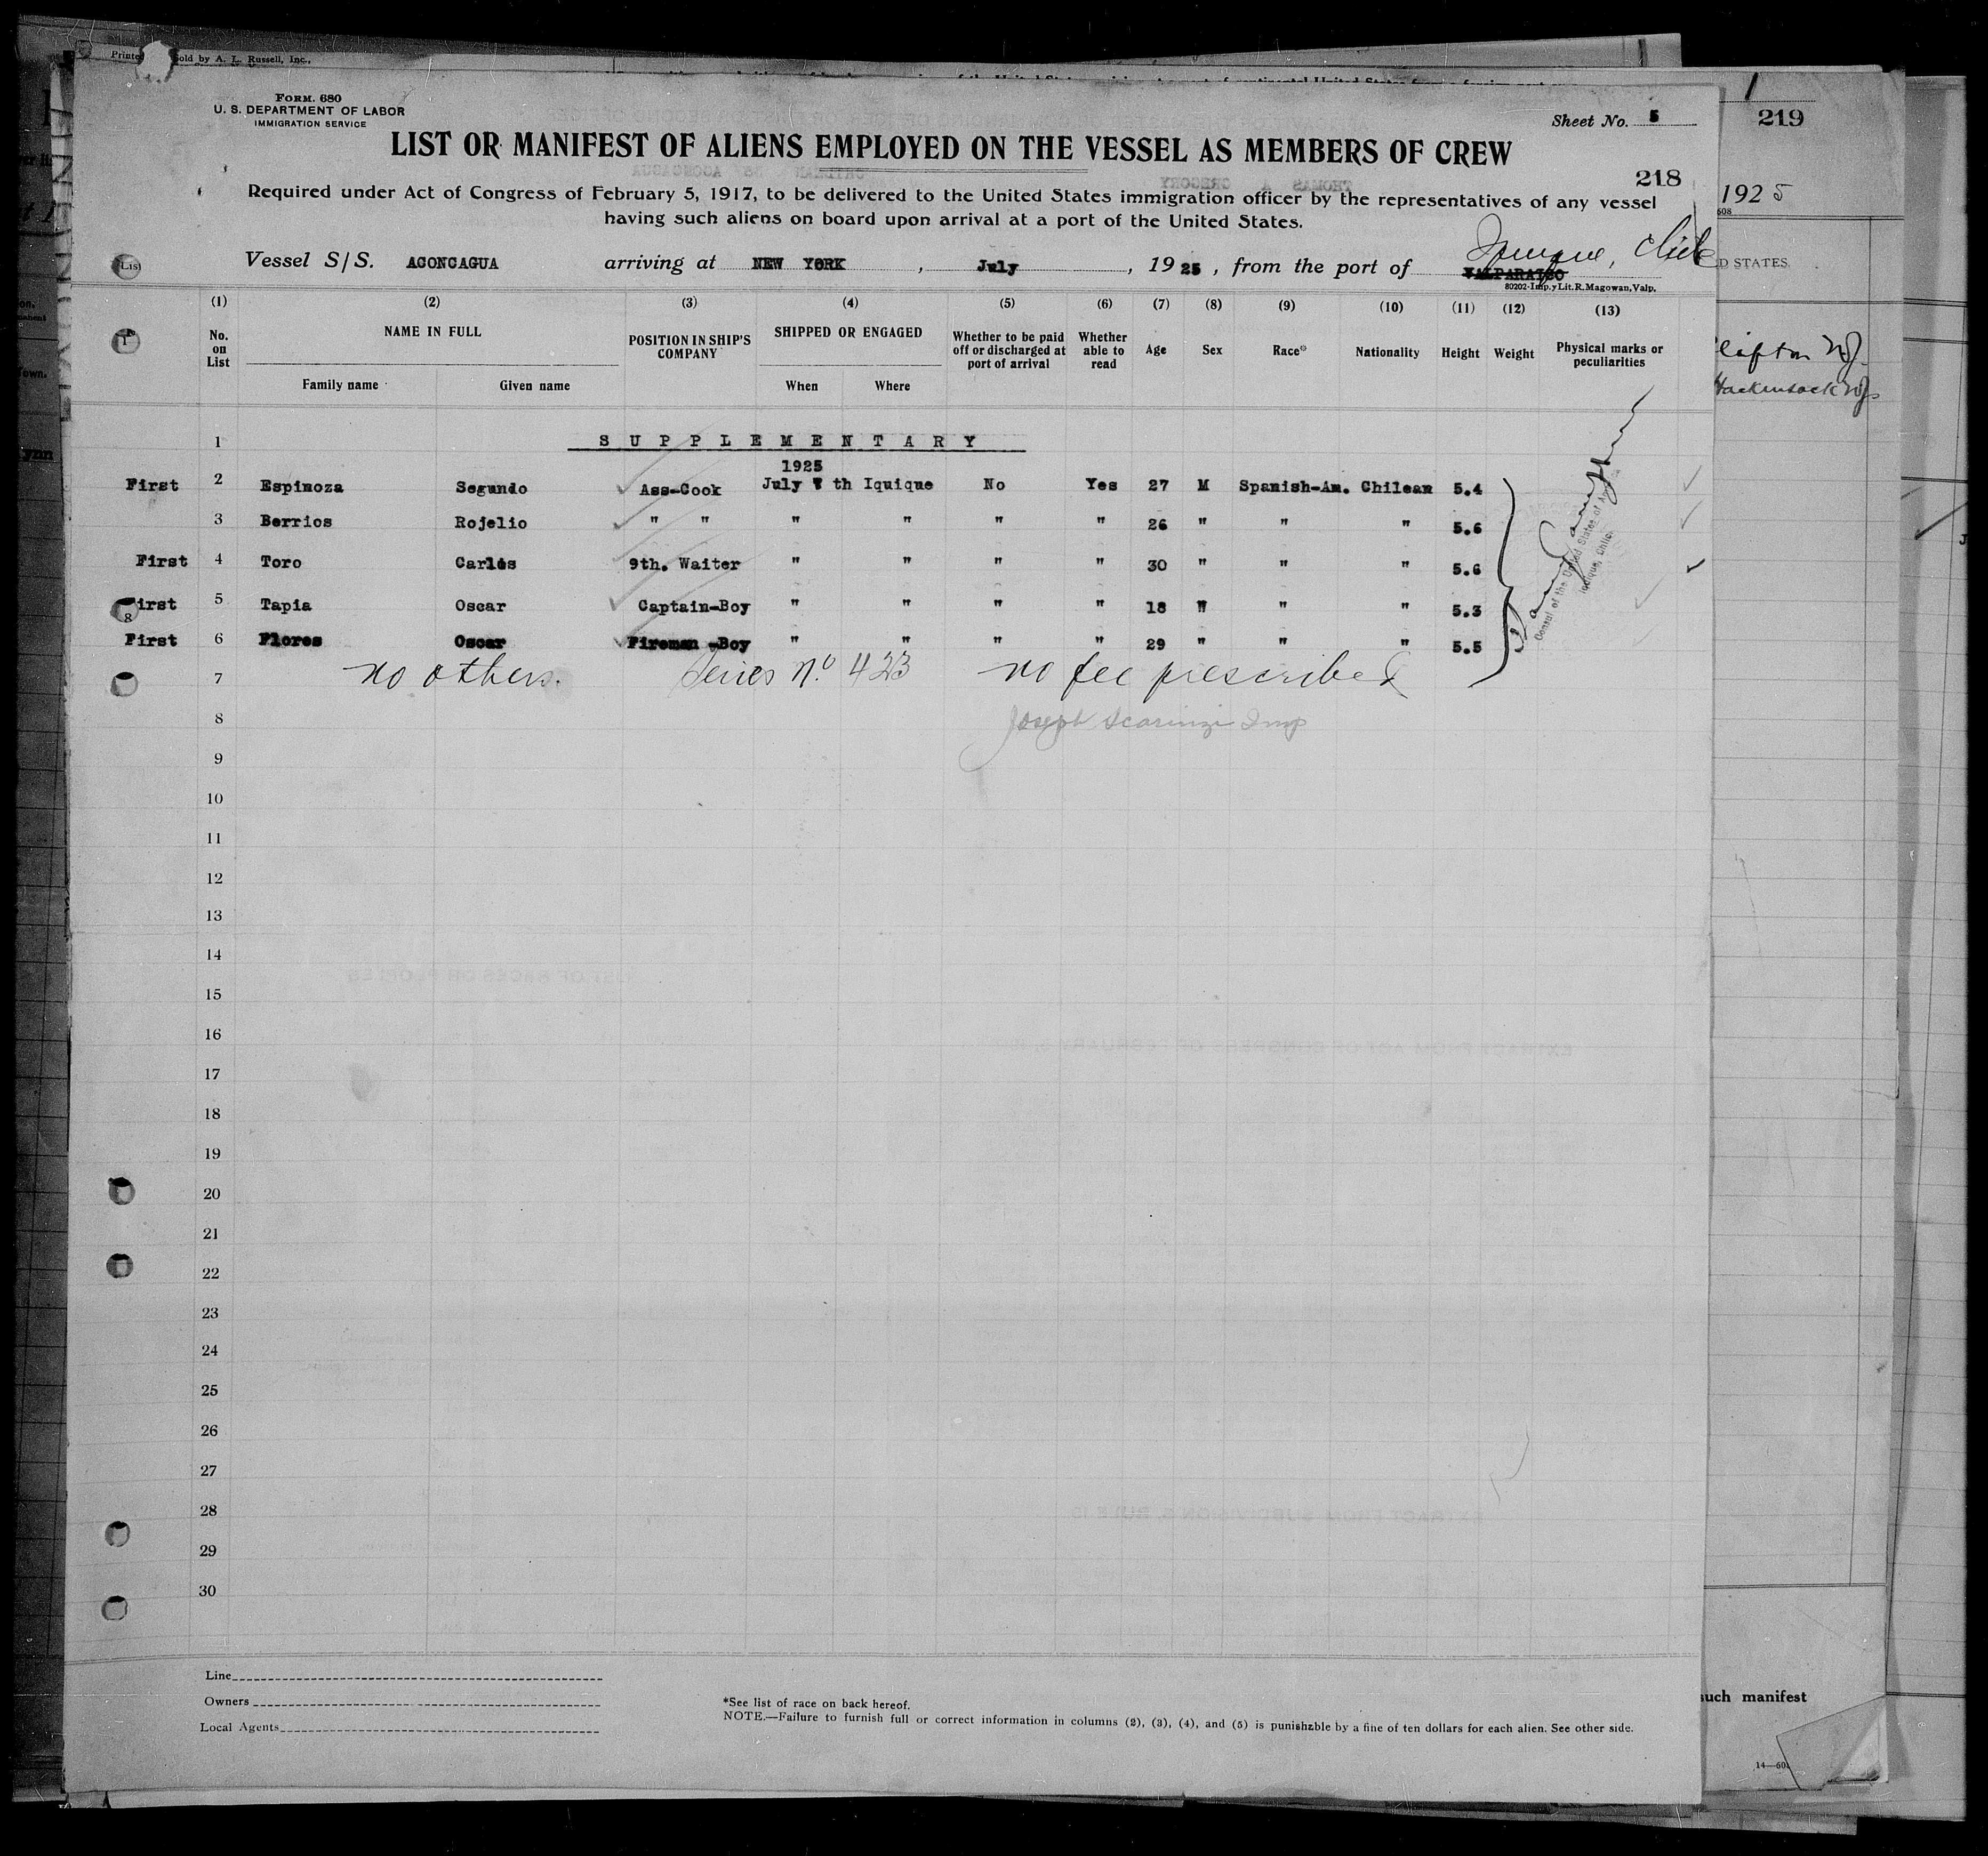 Sold by A. L. Russell, Inc.,
FORM. 680
U. S. DEPARTMENT OF LABOR
IMMIGRATION SERVICE
Sheet No. 5
LIST OR MANIFEST OF ALIENS EMPLOYED ON THE VESSEL AS MEMBERS OF CREW
218
219
Required under Act of Congress of February 5, 1917, to be delivered to the United States immigration officer by the representatives of any vessel
having such aliens on board upon arrival at a port of the United States.
1925
Vessel S/S. ACONCAGUA arriving at NEW YORK, July, 1925, from the port of VALPARAISO Iquique, Chile
80202-Imp. y Lit. R. Magowan, Valp.
D STATES.
(1) (2) (3) (4) (5) (6) (7) (8) (9) (10) (11) (12) (13)
No. on List NAME IN FULL POSITION IN SHIP'S COMPANY SHIPPED OR ENGAGED Whether to be paid off or discharged at port of arrival Whether able to read Age Sex Race* Nationality Height Weight Physical marks or peculiarities
Family name Given name When Where
Clifton NJ.
Hackensack NJ.
1 SUPPLEMENTARY
1925
First 2 Espinoza Segundo Ass-Cook July 7 th Iquique No Yes 27 M Spanish-Am. Chilean 5.4
3 Berrios Rojelio " " " " " " 26 " " " 5.6
First 4 Toro Carlos 9th. Waiter " " " " 30 " " " 5.6
First 5 Tapia Oscar Captain-Boy " " " " 18 " " " 5.3
First 6 Flores Oscar Fireman -Boy " " " " 29 " " " 5.5
Consul of the United States of America
Iquique, Chile
7 no others. Series No. 423 no fee prescribed
8 Joseph Scarinzi Insp
9
10
11
12
13
14
15
16
17
18
19
20
21
22
23
24
25
26
27
28
29
30
Line
Owners
Local Agents
*See list of race on back hereof.
NOTE.—Failure to furnish full or correct information in columns (2), (3), (4), and (5) is punishable by a fine of ten dollars for each alien. See other side.
such manifest